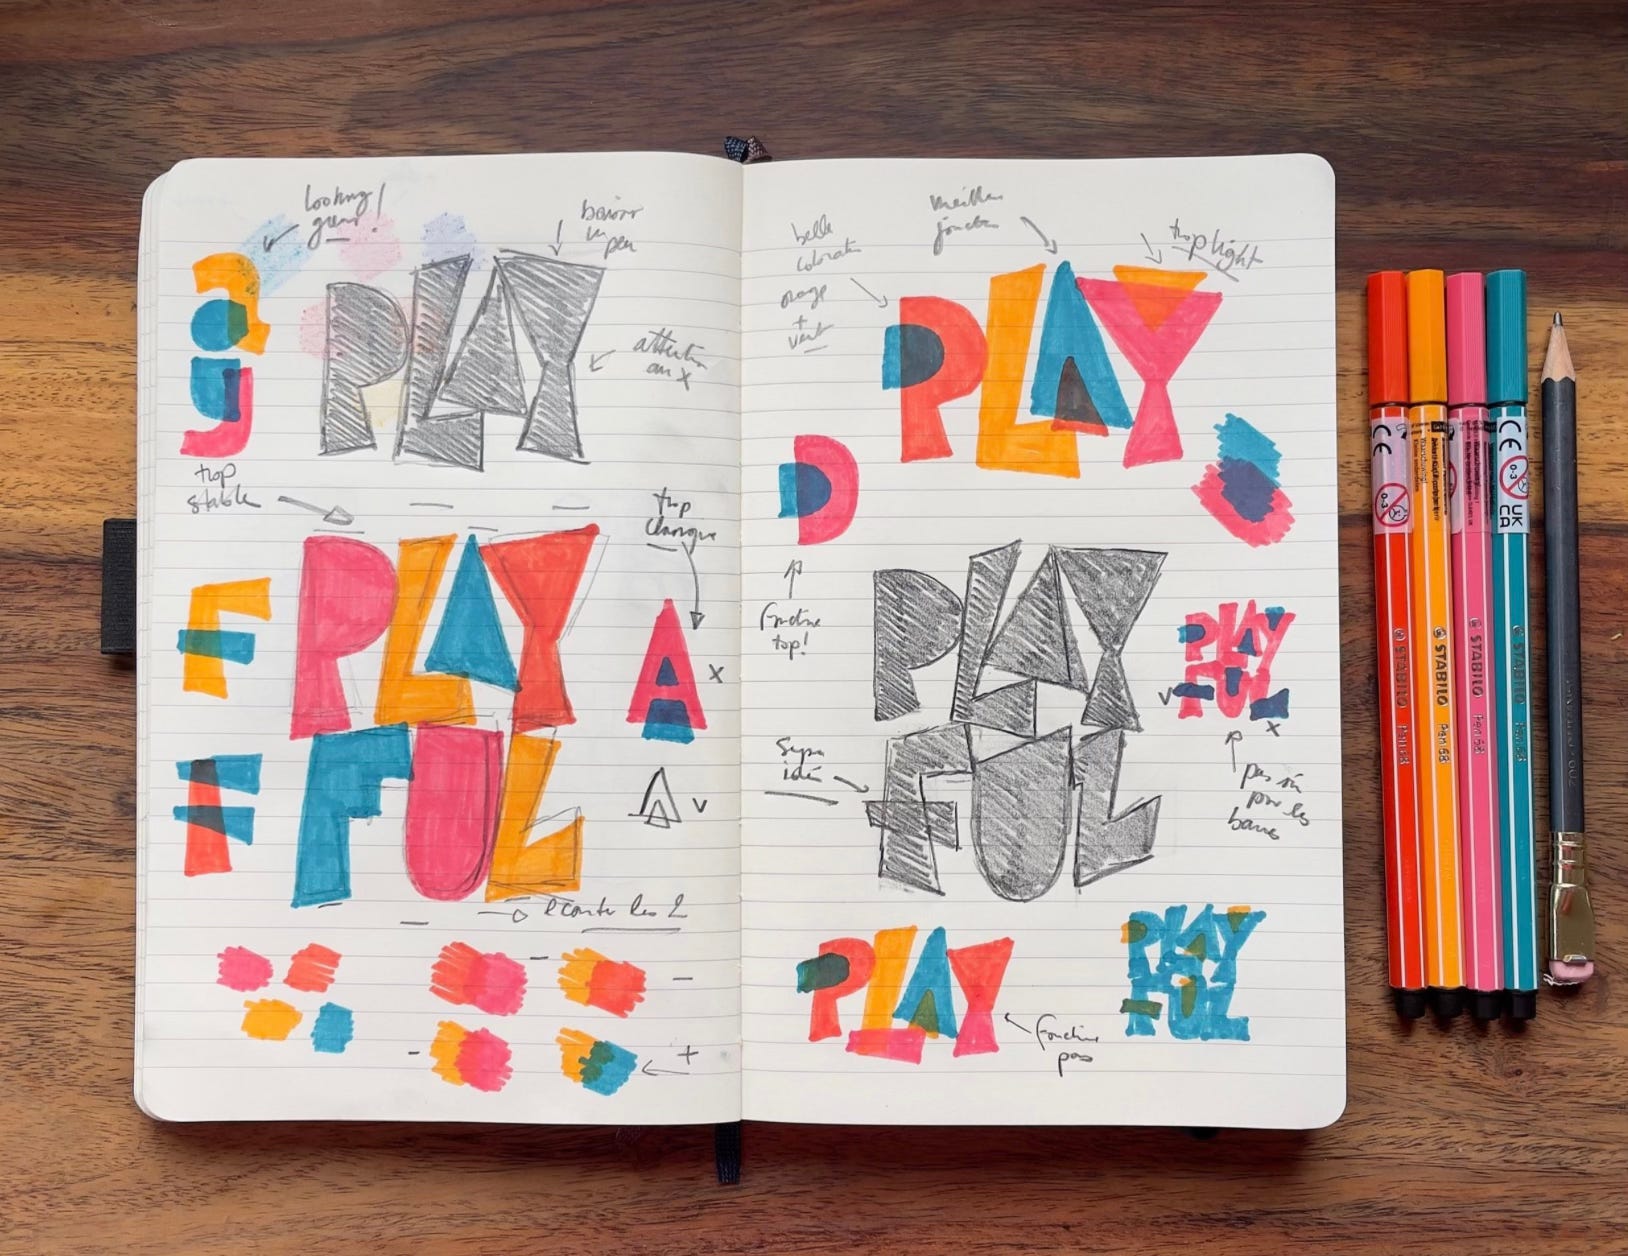 looking
great!
baisser
un
peu
PLAY
attention
au X
a
j
trop
stable
trop
classique
F
PLAY
A
X
F
FUL
A
V
écarter les 2
-
-
-
+
belle
coloration
orange
+
vert
meilleure
jonction
trop light
PLAY
D
fonctionne
top!
PLAY
FUL
PLAY
FUL
V
X
Super
idée
pas sûr
pour les
barres
PLAY
fonctionne
pas
PLAY
FUL
CE
0-3
CE
0-3
UK
CA
STABILO
Pen 68
STABILO
Pen 68
STABILO
Pen 68
STABILO
Pen 68